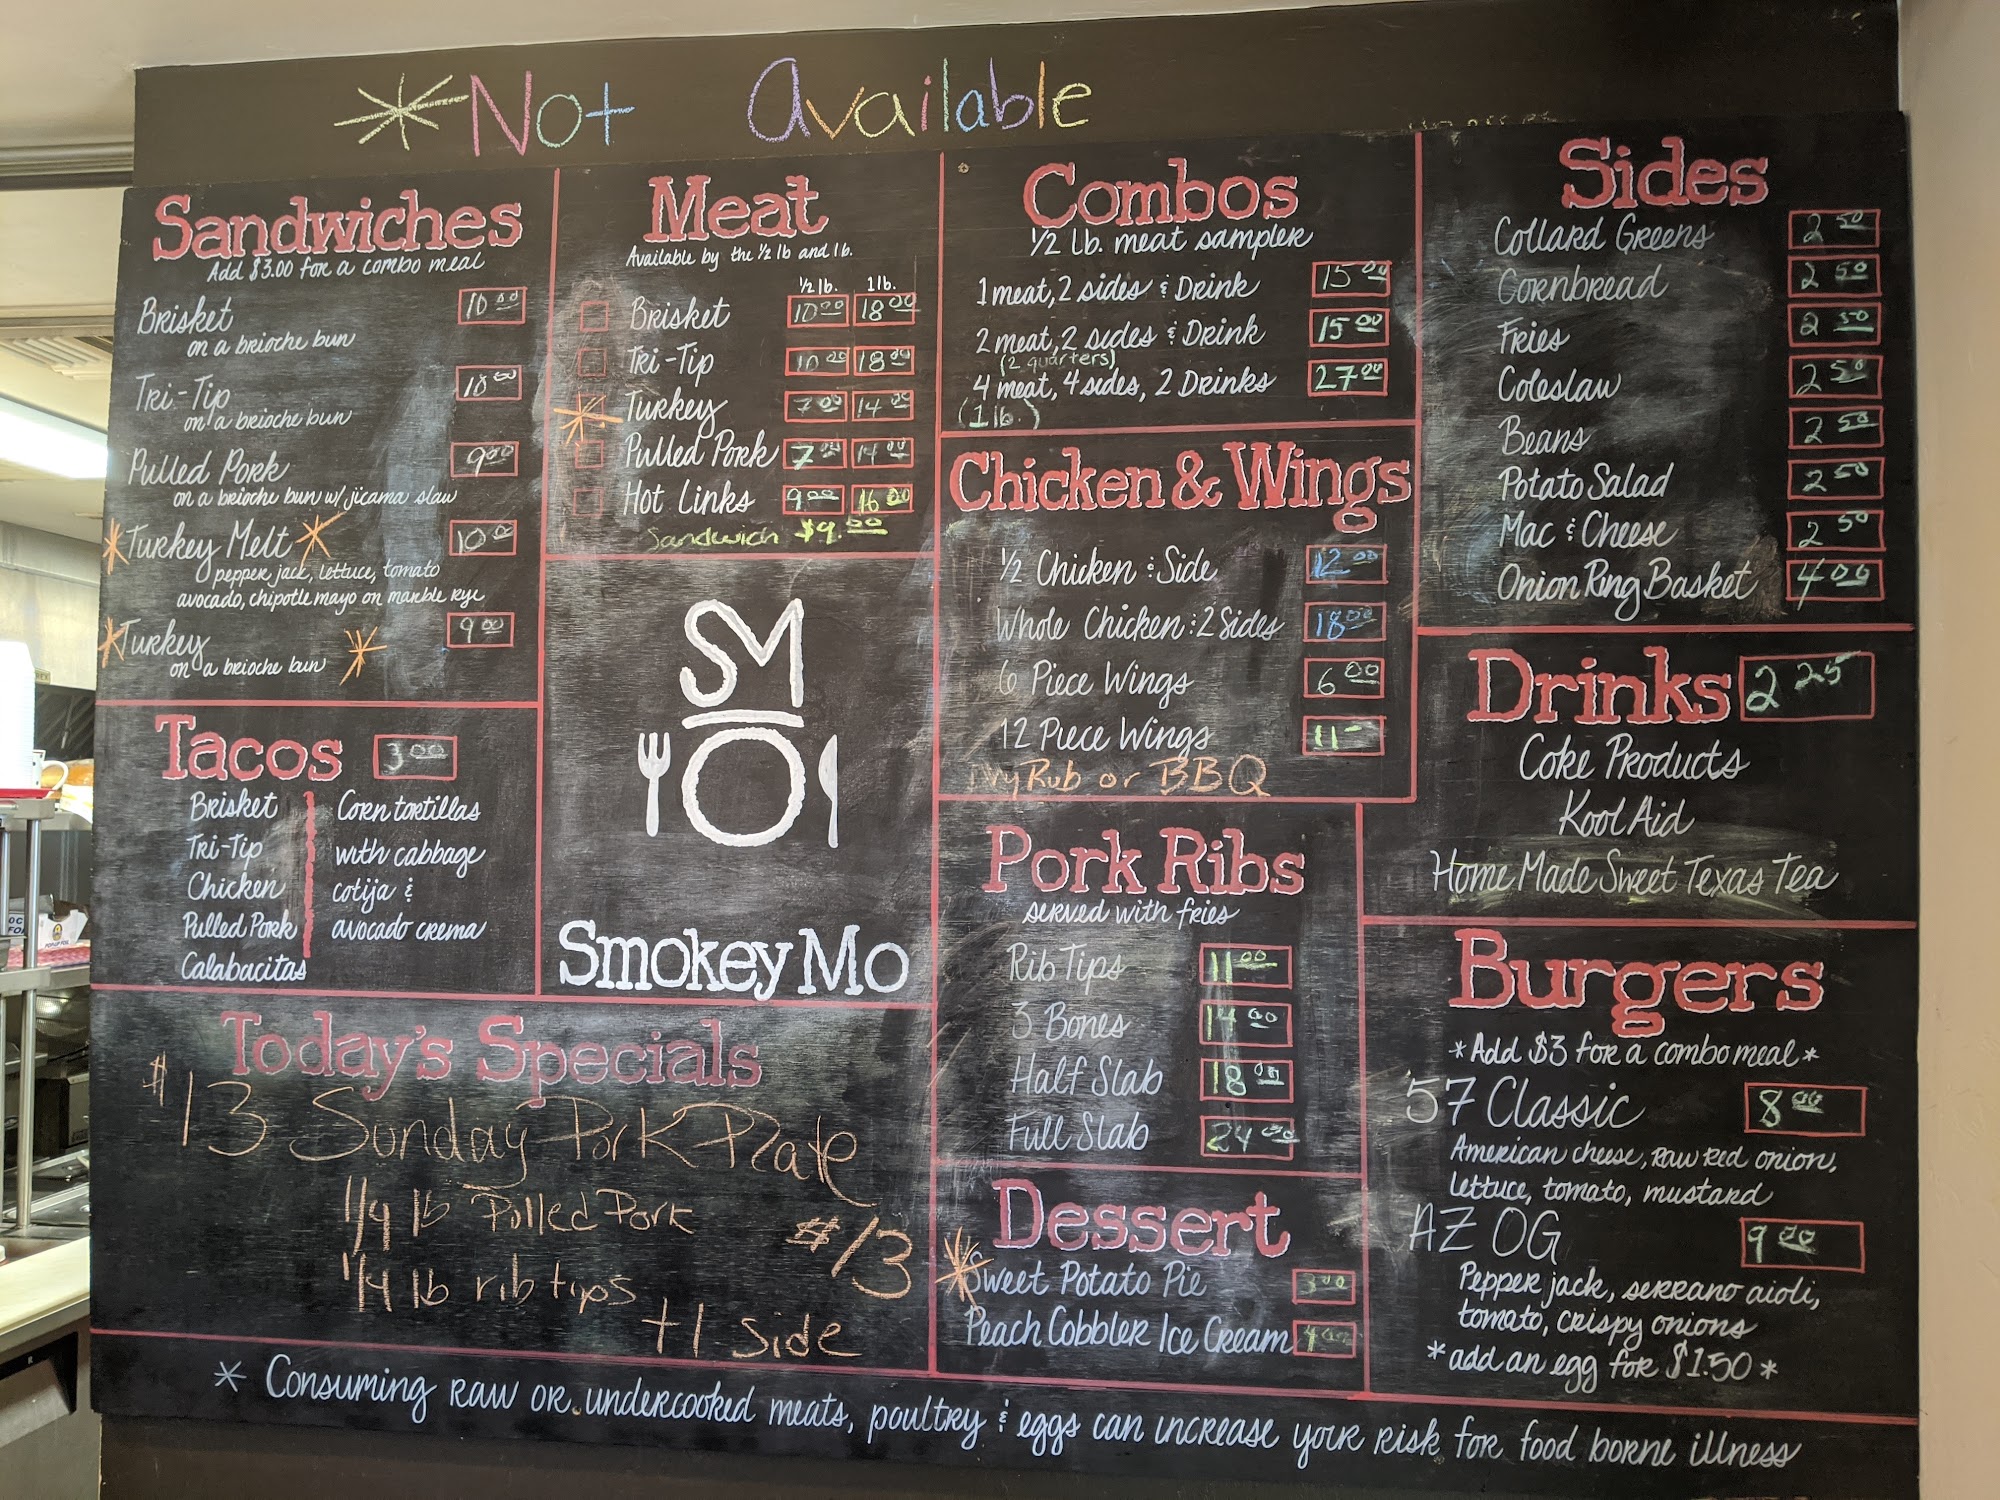 *Not Available
Sandwiches
Add $3.00 for a combo meal
Brisket 10.00
on a brioche bun
Tri-Tip 10.00
on a brioche bun
Pulled Pork 9.00
on a brioche bun w/ jicama slaw
*Turkey Melt* 10.00
pepper jack, lettuce, tomato
avocado, chipotle mayo on marble rye
*Turkey 9.00
on a brioche bun *
Tacos 3.00
Brisket
Tri-Tip
Chicken
Pulled Pork
Calabacitas
Corn tortillas
with cabbage
cotija &
avocado crema
Meat
Available by the 1/2 lb and lb.
1/2 lb. 1 lb.
Brisket 10.00 18.00
Tri-Tip 10.00 18.00
* Turkey 7.00 14.00
Pulled Pork 7.00 14.00
Hot Links 9.00 16.00
Sandwich $9.00
SMO
Smokey Mo
Today's Specials
$13 Sunday Pork Plate
1/4 lb Pulled Pork
$13
1/4 lb rib tips
+1 side
Combos
1/2 Lb. meat sampler
1 meat, 2 sides & Drink 15.00
2 meat, 2 sides & Drink 15.00
(2 quarters)
4 meat, 4 sides, 2 Drinks 27.00
(1 lb.)
Chicken & Wings
1/2 Chicken & Side 12.00
Whole Chicken & 2 Sides 18.00
6 Piece Wings 6.00
12 Piece Wings 11-
Dry Rub or BBQ
Pork Ribs
served with fries
Rib Tips 11.00
3 Bones 14.00
Half Slab 18.00
Full Slab 24.00
Dessert
*Sweet Potato Pie 3.00
Peach Cobbler Ice Cream 4.00
Sides
Collard Greens 2.50
Cornbread 2.50
Fries 2.50
Coleslaw 2.50
Beans 2.50
Potato Salad 2.50
Mac & Cheese 2.50
Onion Ring Basket 4.00
Drinks 2.25
Coke Products
Kool Aid
Home Made Sweet Texas Tea
Burgers
*Add $3 for a combo meal*
57 Classic 8.00
American cheese, raw red onion,
lettuce, tomato, mustard
AZ OG 9.00
Pepper jack, serrano aioli,
tomato, crispy onions
*add an egg for $1.50*
* Consuming raw or undercooked meats, poultry & eggs can increase your risk for food borne illness